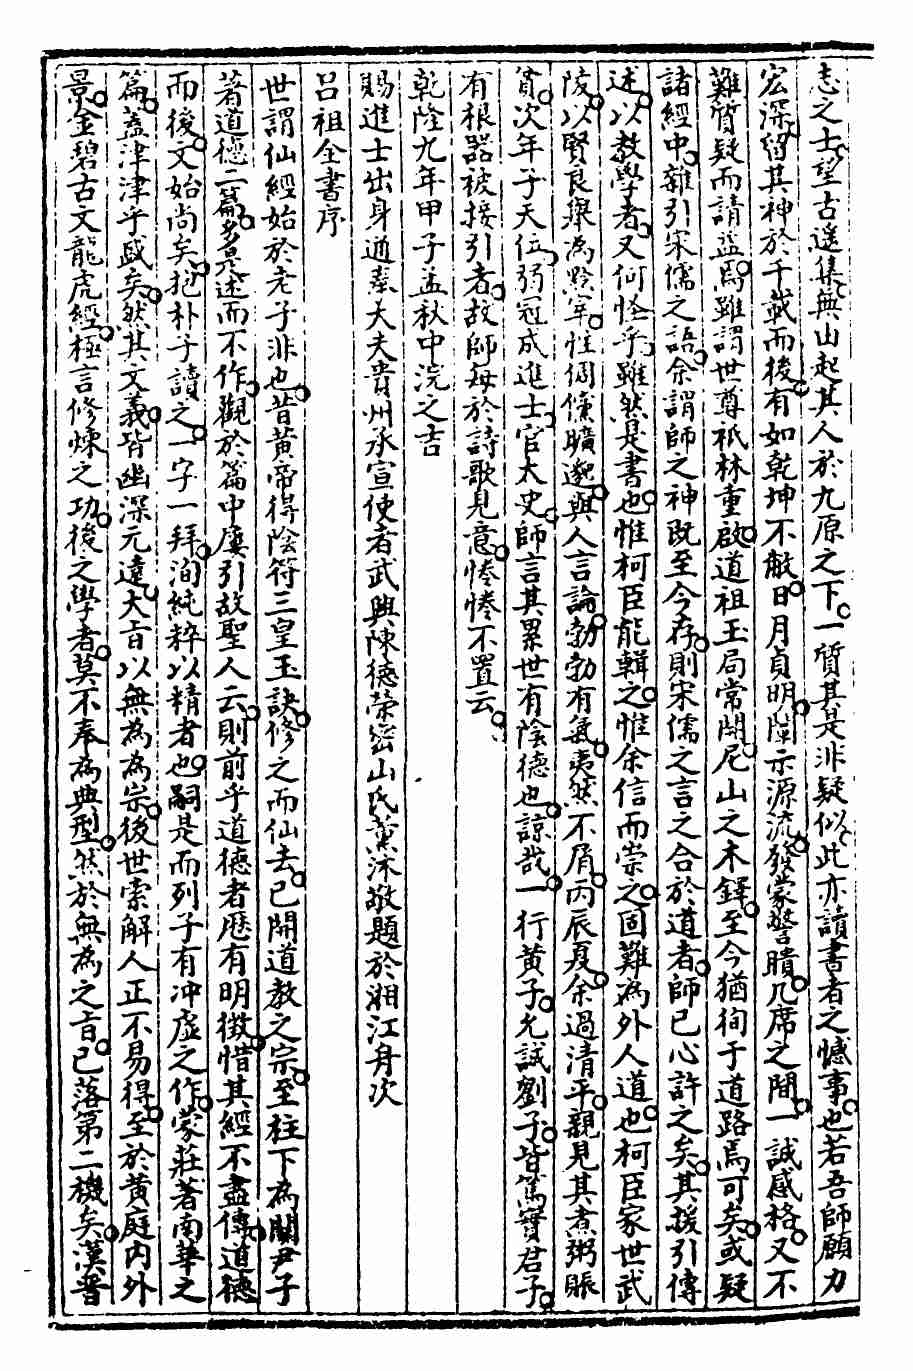 志之士望古遙集無山起其人於九原之下一質其是非疑似此亦讀書者之憾事也若吾師願力
宏深留其神於千載而後有如乾坤不敝日月貞明闡示源流發蒙警聵几席之間一誠感格又不
難質疑而請益焉雖謂世尊祇林重啟道祖玉局常開尼山之木鐸至今猶徇于道路焉可矣或疑
諸經中雜引宋儒之語余謂師之神既至今存則宋儒之言之合於道者師已心許之矣其援引傳
述以教學者又何怪乎雖然是書也惟柯臣能輯之惟余信而崇之固難為外人道也柯臣家世武
陵以賢良舉為黔宰性倜儻曠邈與人言論勃勃有氣夷然不屑丙辰夏余過清平親見其煮粥賑
貧次年子天任弱冠成進士官太史師言其累世有陰德也諒哉一行黃子允誠劉子皆篤實君子
有根器被接引者故師每於詩歌見意惓惓不置云
乾隆九年甲子孟秋中浣之吉
賜進士出身通奉大夫貴州承宣使者武興陳德榮密山氏薰沐敬題於湘江舟次
呂祖全書序
世謂仙經始於老子非也昔黃帝得陰符三皇玉訣修之而仙去已開道教之宗至柱下為關尹子
著道德二篇多是述而不作觀於篇中屢引故聖人云則前乎道德者歷有明徵惜其經不盡傳道德
而後文始尚矣抱朴子讀之一字一拜洵純粹以精者也嗣是而列子有冲虛之作蒙莊著南華之
篇蓋津津乎盛矣然其文義皆幽深元遠大旨以無為為宗後世索解人正不易得至於黃庭內外
景金碧古文龍虎經極言修煉之功後之學者莫不奉為典型然於無為之旨已落第二機矣漢晉